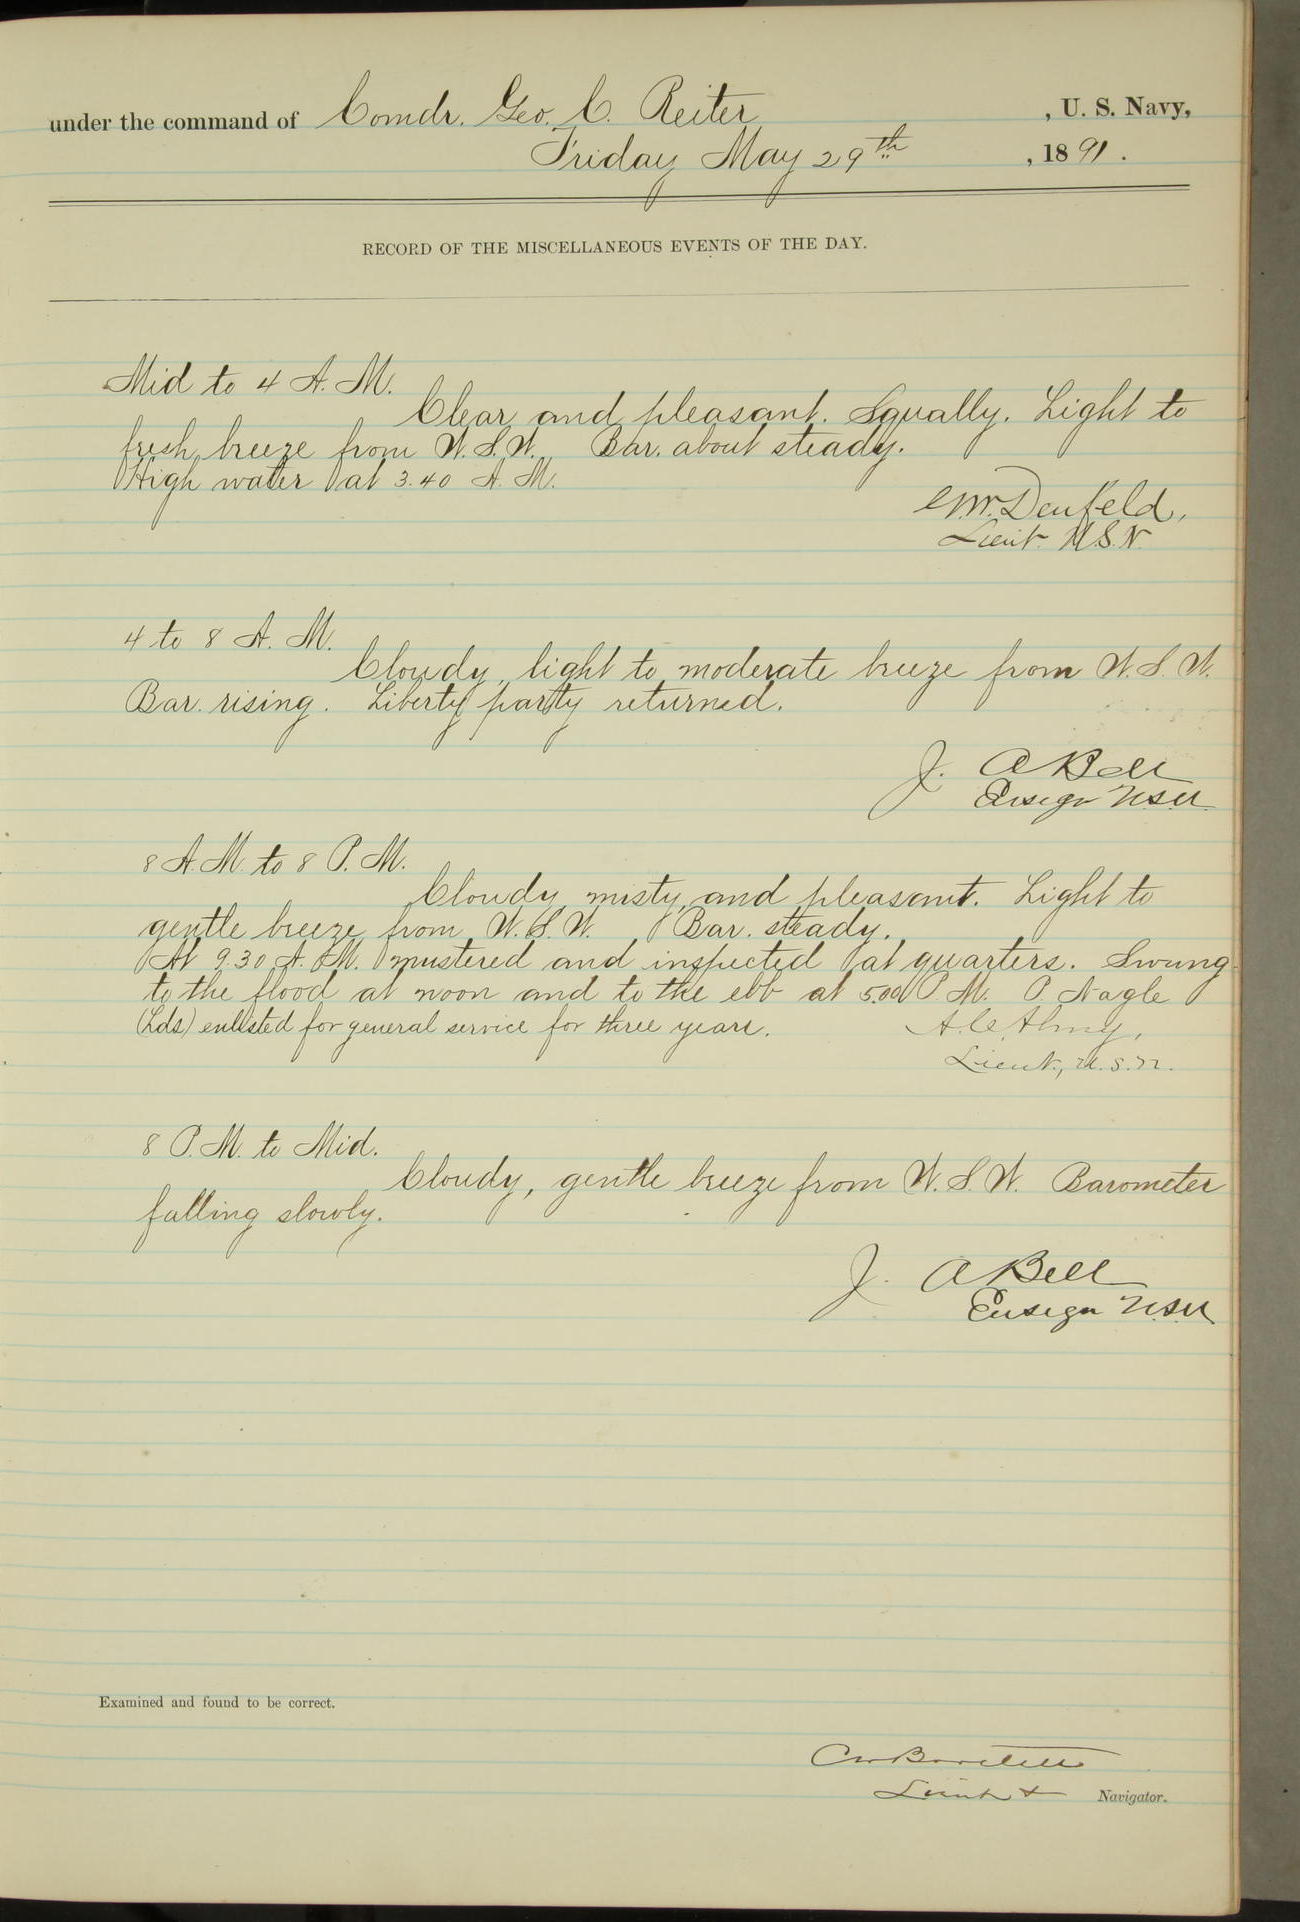 under the command of Comdr. Geo. C. Reiter , U. S. Navy,
Friday May 29th , 1891.
RECORD OF THE MISCELLANEOUS EVENTS OF THE DAY.
Mid to 4 A. M.
Clear and pleasant. Squally. Light to
fresh breeze from W.S.W. Bar. about steady.
High water at 3.40 A. M.
Denfeld,
Lieut. U.S.N.
4 to 8 A. M.
Cloudy, light to moderate breeze from W.S.W.
Bar. rising. Liberty party returned.
J. A Bell
Ensign USN
8 A.M. to 8 P.M.
Cloudy, misty, and pleasant. Light to
gentle breeze from W.S.W. Bar. steady.
At 9.30 A. M. mustered and inspected at quarters. Swung
to the flood at noon and to the ebb at 5.00 P.M. P. Nagle
(Lds) enlisted for general service for three years.
A.C. Almy,
Lieut., U.S.N.
8 P.M. to Mid.
Cloudy, gentle breeze from W.S.W. Barometer
falling slowly.
J. A Bell
Ensign USN
Examined and found to be correct.
Lieut & Navigator.